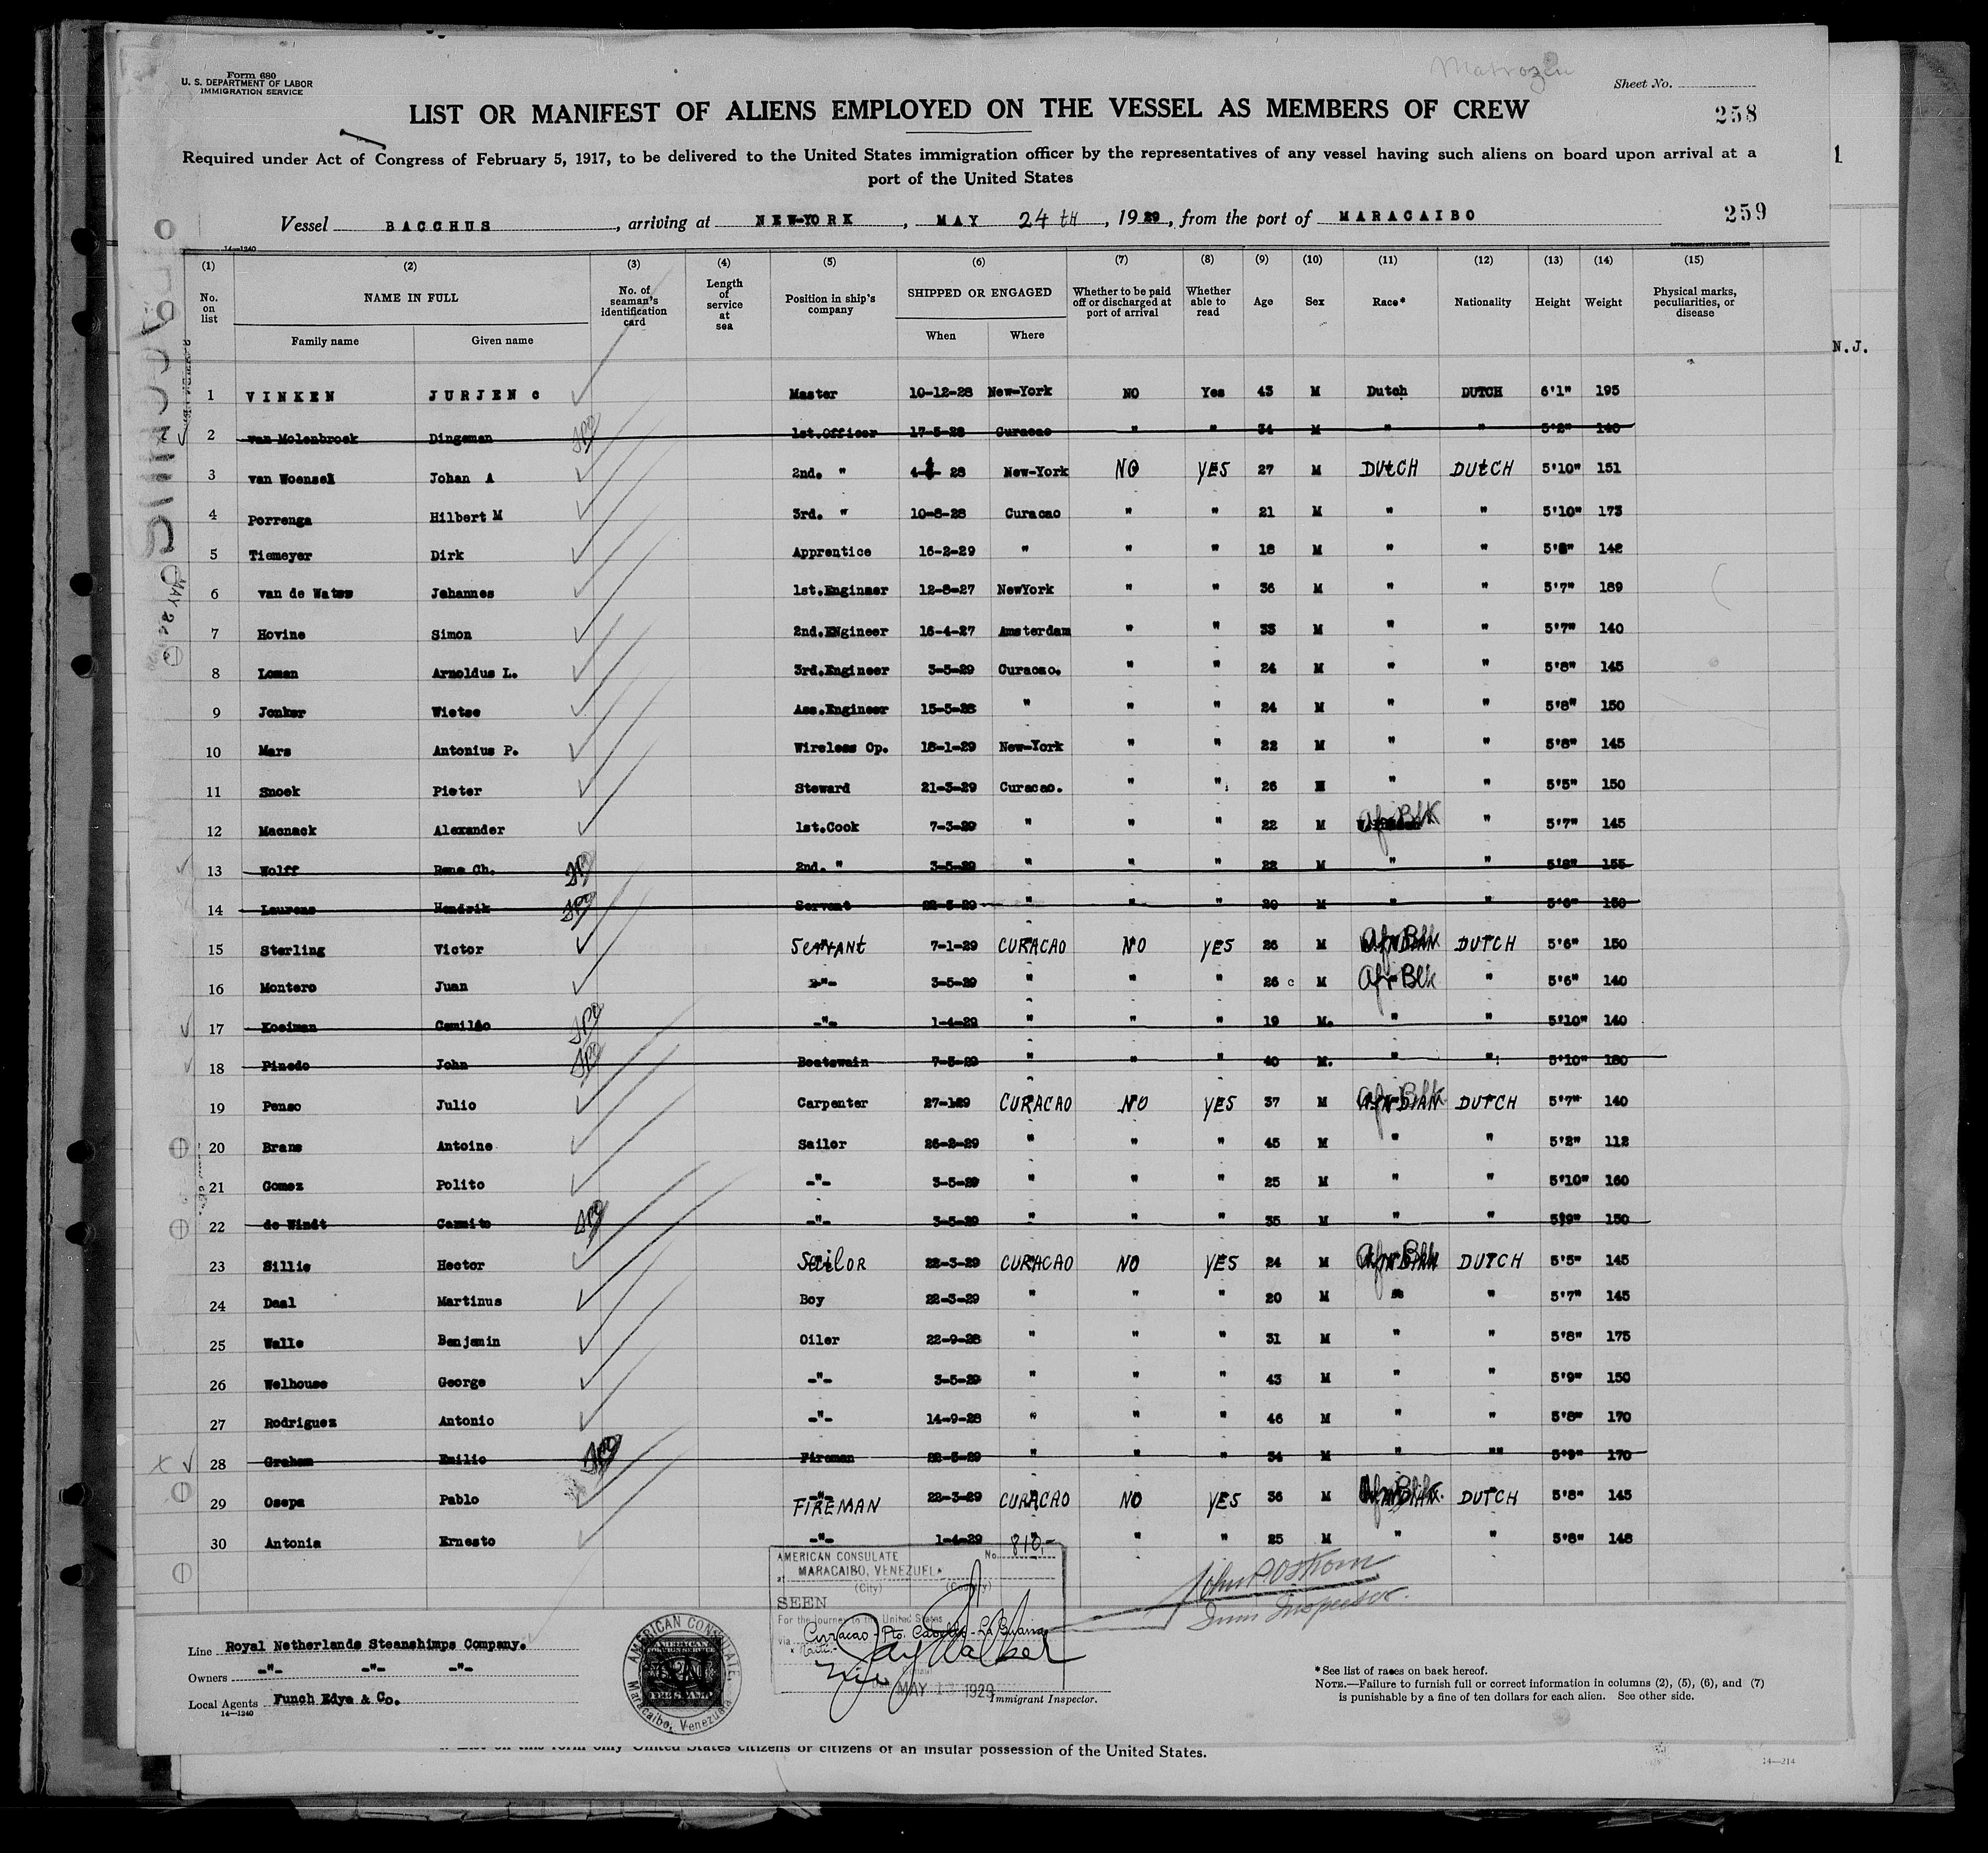 Form 680
U. S. DEPARTMENT OF LABOR
IMMIGRATION SERVICE
Matrozen
Sheet No.
LIST OR MANIFEST OF ALIENS EMPLOYED ON THE VESSEL AS MEMBERS OF CREW
258
Required under Act of Congress of February 5, 1917, to be delivered to the United States immigration officer by the representatives of any vessel having such aliens on board upon arrival at a
port of the United States
1
Vessel BACCHUS, arriving at NEW-YORK, MAY 24 th, 1929, from the port of MARACAIBO
259
14—1240
(1) (2) (3) (4) (5) (6) (7) (8) (9) (10) (11) (12) (13) (14) (15)
No. on list NAME IN FULL No. of seaman's identification card Length of service at sea Position in ship's company SHIPPED OR ENGAGED Whether to be paid off or discharged at port of arrival Whether able to read Age Sex Race* Nationality Height Weight Physical marks, peculiarities, or disease
Family name Given name When Where
N.J.
1 VINKEN JURJEN C Master 10-12-28 New-York NO Yes 43 M Dutch DUTCH 6'1" 195
2 van Molenbroek Dingeman 1st.Officer 17-5-28 Curacao " " 34 M " " 5'2" 140
3 van Woensel Johan A 2nd. " 28 New-York NO YES 27 M DUtCH DUtCH 5'10" 151
4 Porrenga Hilbert M 3rd. " 10-8-28 Curacao " " 21 M " " 5'10" 173
5 Tiemeyer Dirk Apprentice 16-2-29 " " " 18 M " " 5'8" 142
6 van de Water Johannes 1st.Engineer 12-8-27 NewYork " " 36 M " " 5'7" 189
7 Hovine Simon 2nd.ENgineer 16-4-27 Amsterdam " " 33 M " " 5'7" 140
8 Loman Arnoldus L. 3rd.Engineer 3-5-29 Curacao. " " 24 M " " 5'8" 145
9 Jonker Wietse Ass.Engineer 15-5-28 " " " 24 M " " 5'8" 150
10 Mars Antonius P. Wireless Op. 18-1-29 New-York " " 22 M " " 5'8" 145
11 Snoek Pieter Steward 21-3-29 Curacao. " " 26 M " " 5'5" 150
12 Macnack Alexander 1st.Cook 7-3-29 " " " 22 M Afr Blk " 5'7" 145
13 Wolff Rene Ch. 2nd. " 3-5-29 " " " 22 M " " 5'8" 155
14 Laurens Hendrik Servant 22-5-29 " " " 20 M " " 5'6" 150
15 Sterling Victor SERVANt 7-1-29 CURACAO NO YES 26 M Afr Blk DUTCH 5'6" 150
16 Montero Juan -"- 3-5-29 " " " 26 c M Afr Blk " 5'6" 140
17 Kooiman Camilio -"- 1-4-29 " " " 19 M. " " 5'10" 140
18 Pinedo John Boatswain 7-5-29 " " " 40 M. " " 5'10" 180
19 Penso Julio Carpenter 27-129 CURACAO NO YES 37 M Afr Blk DUTCH 5'7" 140
20 Brans Antoine Sailor 26-2-29 " " " 45 M " " 5'2" 112
21 Gomez Polito -"- 3-5-29 " " " 25 M " " 5'10" 160
22 de Windt Carmito -"- 3-5-29 " " " 35 M " " 5'9" 150
23 Sillie Hector SAiLOR 22-3-29 CURACAO NO YES 24 M Afr Blk DUTCH 5'5" 145
24 Daal Martinus Boy 22-3-29 " " " 20 M " " 5'7" 145
25 Walle Benjamin Oiler 22-9-28 " " " 31 M " " 5'8" 175
26 Welhouse George -"- 3-5-29 " " " 43 M " " 5'9" 150
27 Rodriguez Antonio -"- 14-9-28 " " " 46 M " " 5'8" 170
28 Graham Emilio Fireman 22-5-29 " " " 34 M " "" 5'9" 170
29 Osepa Pablo FIREMAN 22-3-29 CURACAO NO YES 36 M Afr Blk. DUTCH 5'8" 145
30 Antonia Ernesto -"- 1-4-29 " " " 25 M " " 5'8" 148
AMERICAN CONSULATE No. 810.-
at MARACAIBO, VENEZUELA
(City) (Country)
SEEN
For the journey to the United States
Via Curacao - Pto. Cabello - La Guaira
Haiti.-
Jay Walker
MAY 13 1929
Immigrant Inspector.
John P. Ostrom
Imm Inspector.
Line Royal Netherlands Steamshimps Company.
Owners -"- -"- -"-
Local Agents Funch Edye & Co.
14—1240
AMERICAN CONSULATE,
AMERICAN
FOREIGN SERVICE
FEE STAMP
Maracaibo, Venezuela
*See list of races on back hereof.
NOTE.—Failure to furnish full or correct information in columns (2), (5), (6), and (7)
is punishable by a fine of ten dollars for each alien. See other side.
List on this form only United States citizens or citizens of an insular possession of the United States.
14—214